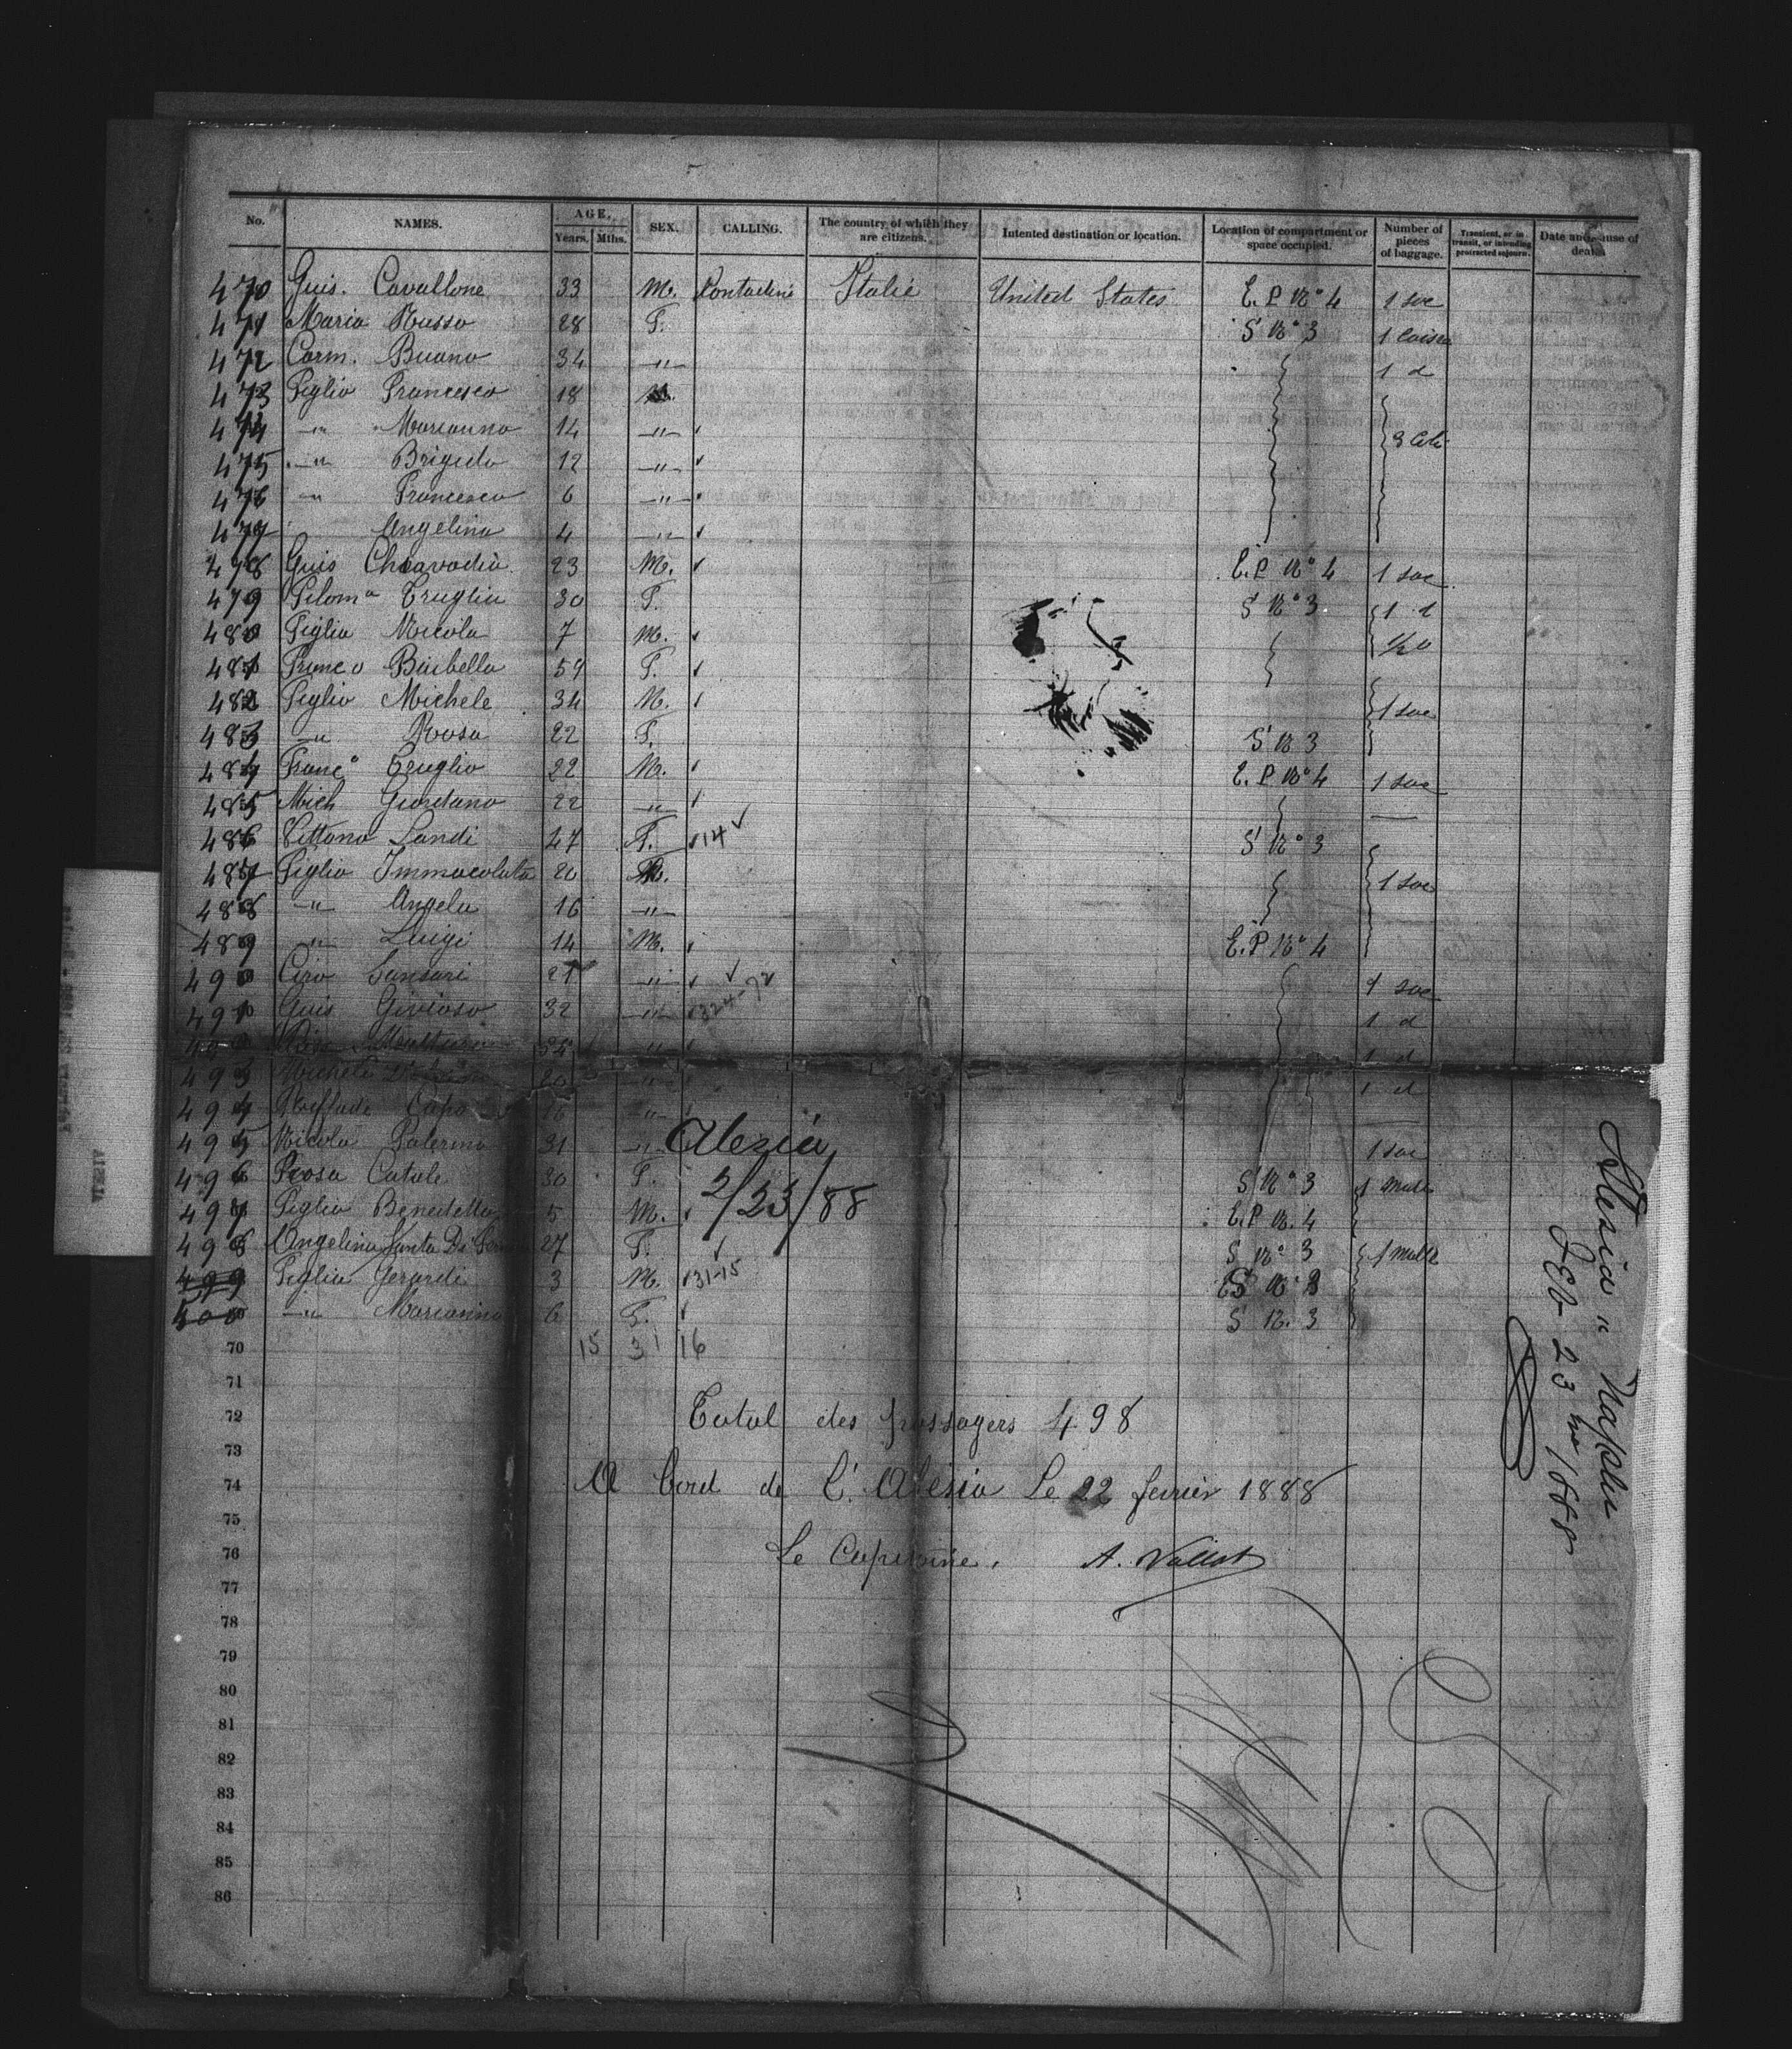 No. NAMES. AGE, Years, Mths. SEX. CALLING. The country of which they are citizens. Intented destination or location. Location of compartment or space occupied. Number of pieces of baggage. Transient, or in transit, or intending protracted sojourn. Date and cause of death
470 Guis. Cavallone 33 M. Contadini Italie United States E. P No 4 1 sac
471 Maria Russo 28 F. S No 3 1 caisse
472 Carm. Buono 34 " 1 d
473 Figlio Francesco 18 M.
474 " Marianna 14 "
475 " Brigida 12 "
476 " Francesca 6 "
477 Angelina 4 "
478 Guis 23 M. E. P No 4 1 sac
479 Filoma Truglia 30 F. S No 3 1 d
480 Figlio Nicola 7 M.
481 Barbella 59 F.
482 Figlio Michele 34 M. 1 sac
483 " Rosa 22 F. S N 3
484 Franco Truglio 22 M. E. P No 4 1 sac
485 Mich Giordano 22 "
486 Landi 47 F. 14 S No 3
487 Figlio Immacolata 20 1 sac
488 " Angela 16 "
489 " Luigi 14 M. E. P No 4
490 Ciro Sansari 21 " 1 sac
491 Guis 32 " 1 d
34 " 1 d
493 Michele 20 " 1 d
494 Capo 16 "
495 Nicola Palermo 31 " 1 sac
Alesia
496 Rosa Catale 30 F. S No 3 1 malle
2/23/88
497 Figlio Benedetto 5 M. E. P N. 4
498 Angelina Santa Di 27 F. S No 3 1 malle
499 Figlio Gerardi 3 M. 31-15
500 " Marianna 6 F. S N. 3
70 15 31 16
71
72 Total des passagers 498
73
74 A bord de L'Alesia Le 22 fevrier 1888
75
76 Le Capitaine.
77
78
79
80
81
82
83
84
85
86
Alesia " Naples
FEB 23 1888
ALESIA